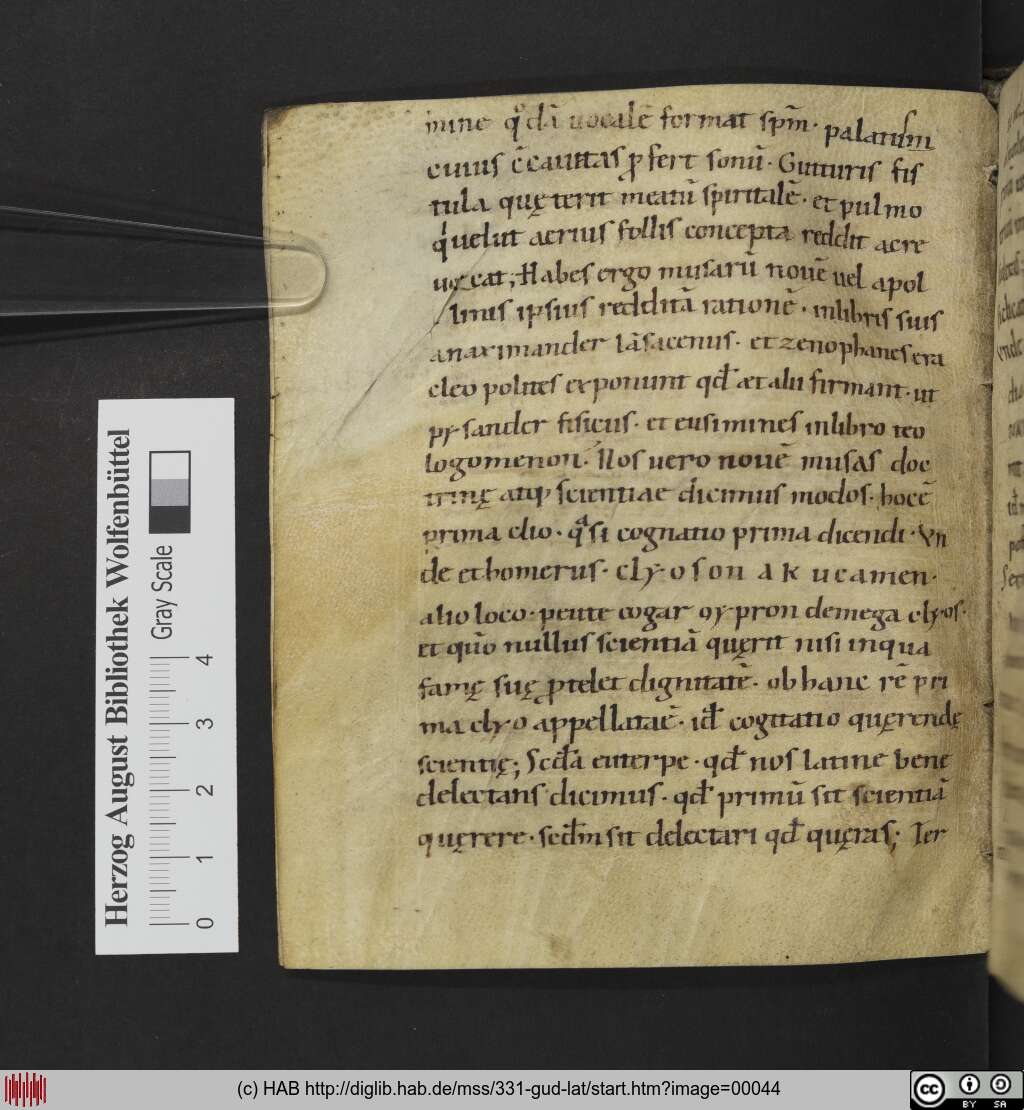 mine qͦdā uocalē format spm̄· palatum
cuius c̄cauitas ꝓfert sonū· Gutturis fis
tula quę terit meatū spiritalē· et pulmo
q uelut aerius follis concepta reddit acre
uocat; Habes ergo musarū nouē uel apol
linis ipsius redditā rationē· inlibris suis
anaximander lāsacenus· et zenophanes era
cleo polites exponunt qd̄ æt alii firmant· ut
pysander fisicus· et eusimines inlibro teo
logomenon· Nos uero nouē musas doc
trinę atqꝫ scientiae dicimus modos· hoc ē
prima clio· qͣsi cognatio prima dicendi· Vn
de et homerus· clyoson ak ucamen·
alio loco· peute cogar oypron demega clyos·
et qūo nullus scientiā quęrit nisi in qua
famę suę ꝓtelet dignitatē· ob hanc rē pri
ma clyo appellatać· id̄ cogitatio quęrendę
scientię; Scd̄a euterpe· qd̄ nos latine bene
delectans dicimus· qd̄ primū sit scientiā
quęrere· sed̄m sit delectari qd̄ quęras; Ter
Herzog August Bibliothek Wolfenbüttel
Gray Scale
0 1 2 3 4
(c) HAB http://diglib.hab.de/mss/331-gud-lat/start.htm?image=00044
cc BY SA